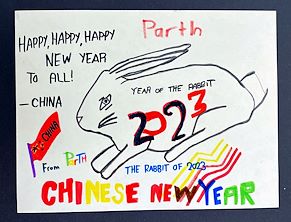 Parth
HAPPY, HAPPY, HAPPY
NEW YEAR
TO ALL!
- CHINA
YEAR OF THE RABBIT
2023
TO: CHINA
From Parth
THE RABBIT OF 2023
CHINESE NEW YEAR